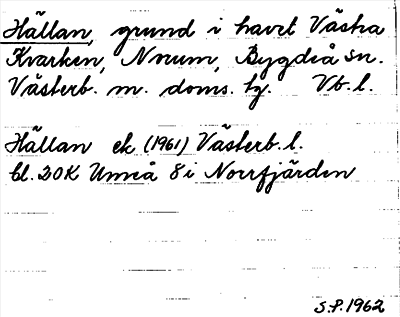 Hällan, grund i havet Västra
Kvarken, Norum, Bygdeå sn.
Västerb. m. doms. hg. Vb. l.
Hällan ek (1961) Västerb. l.
bl. 20K Umeå 8 i Norrfjärden
S.P. 1962